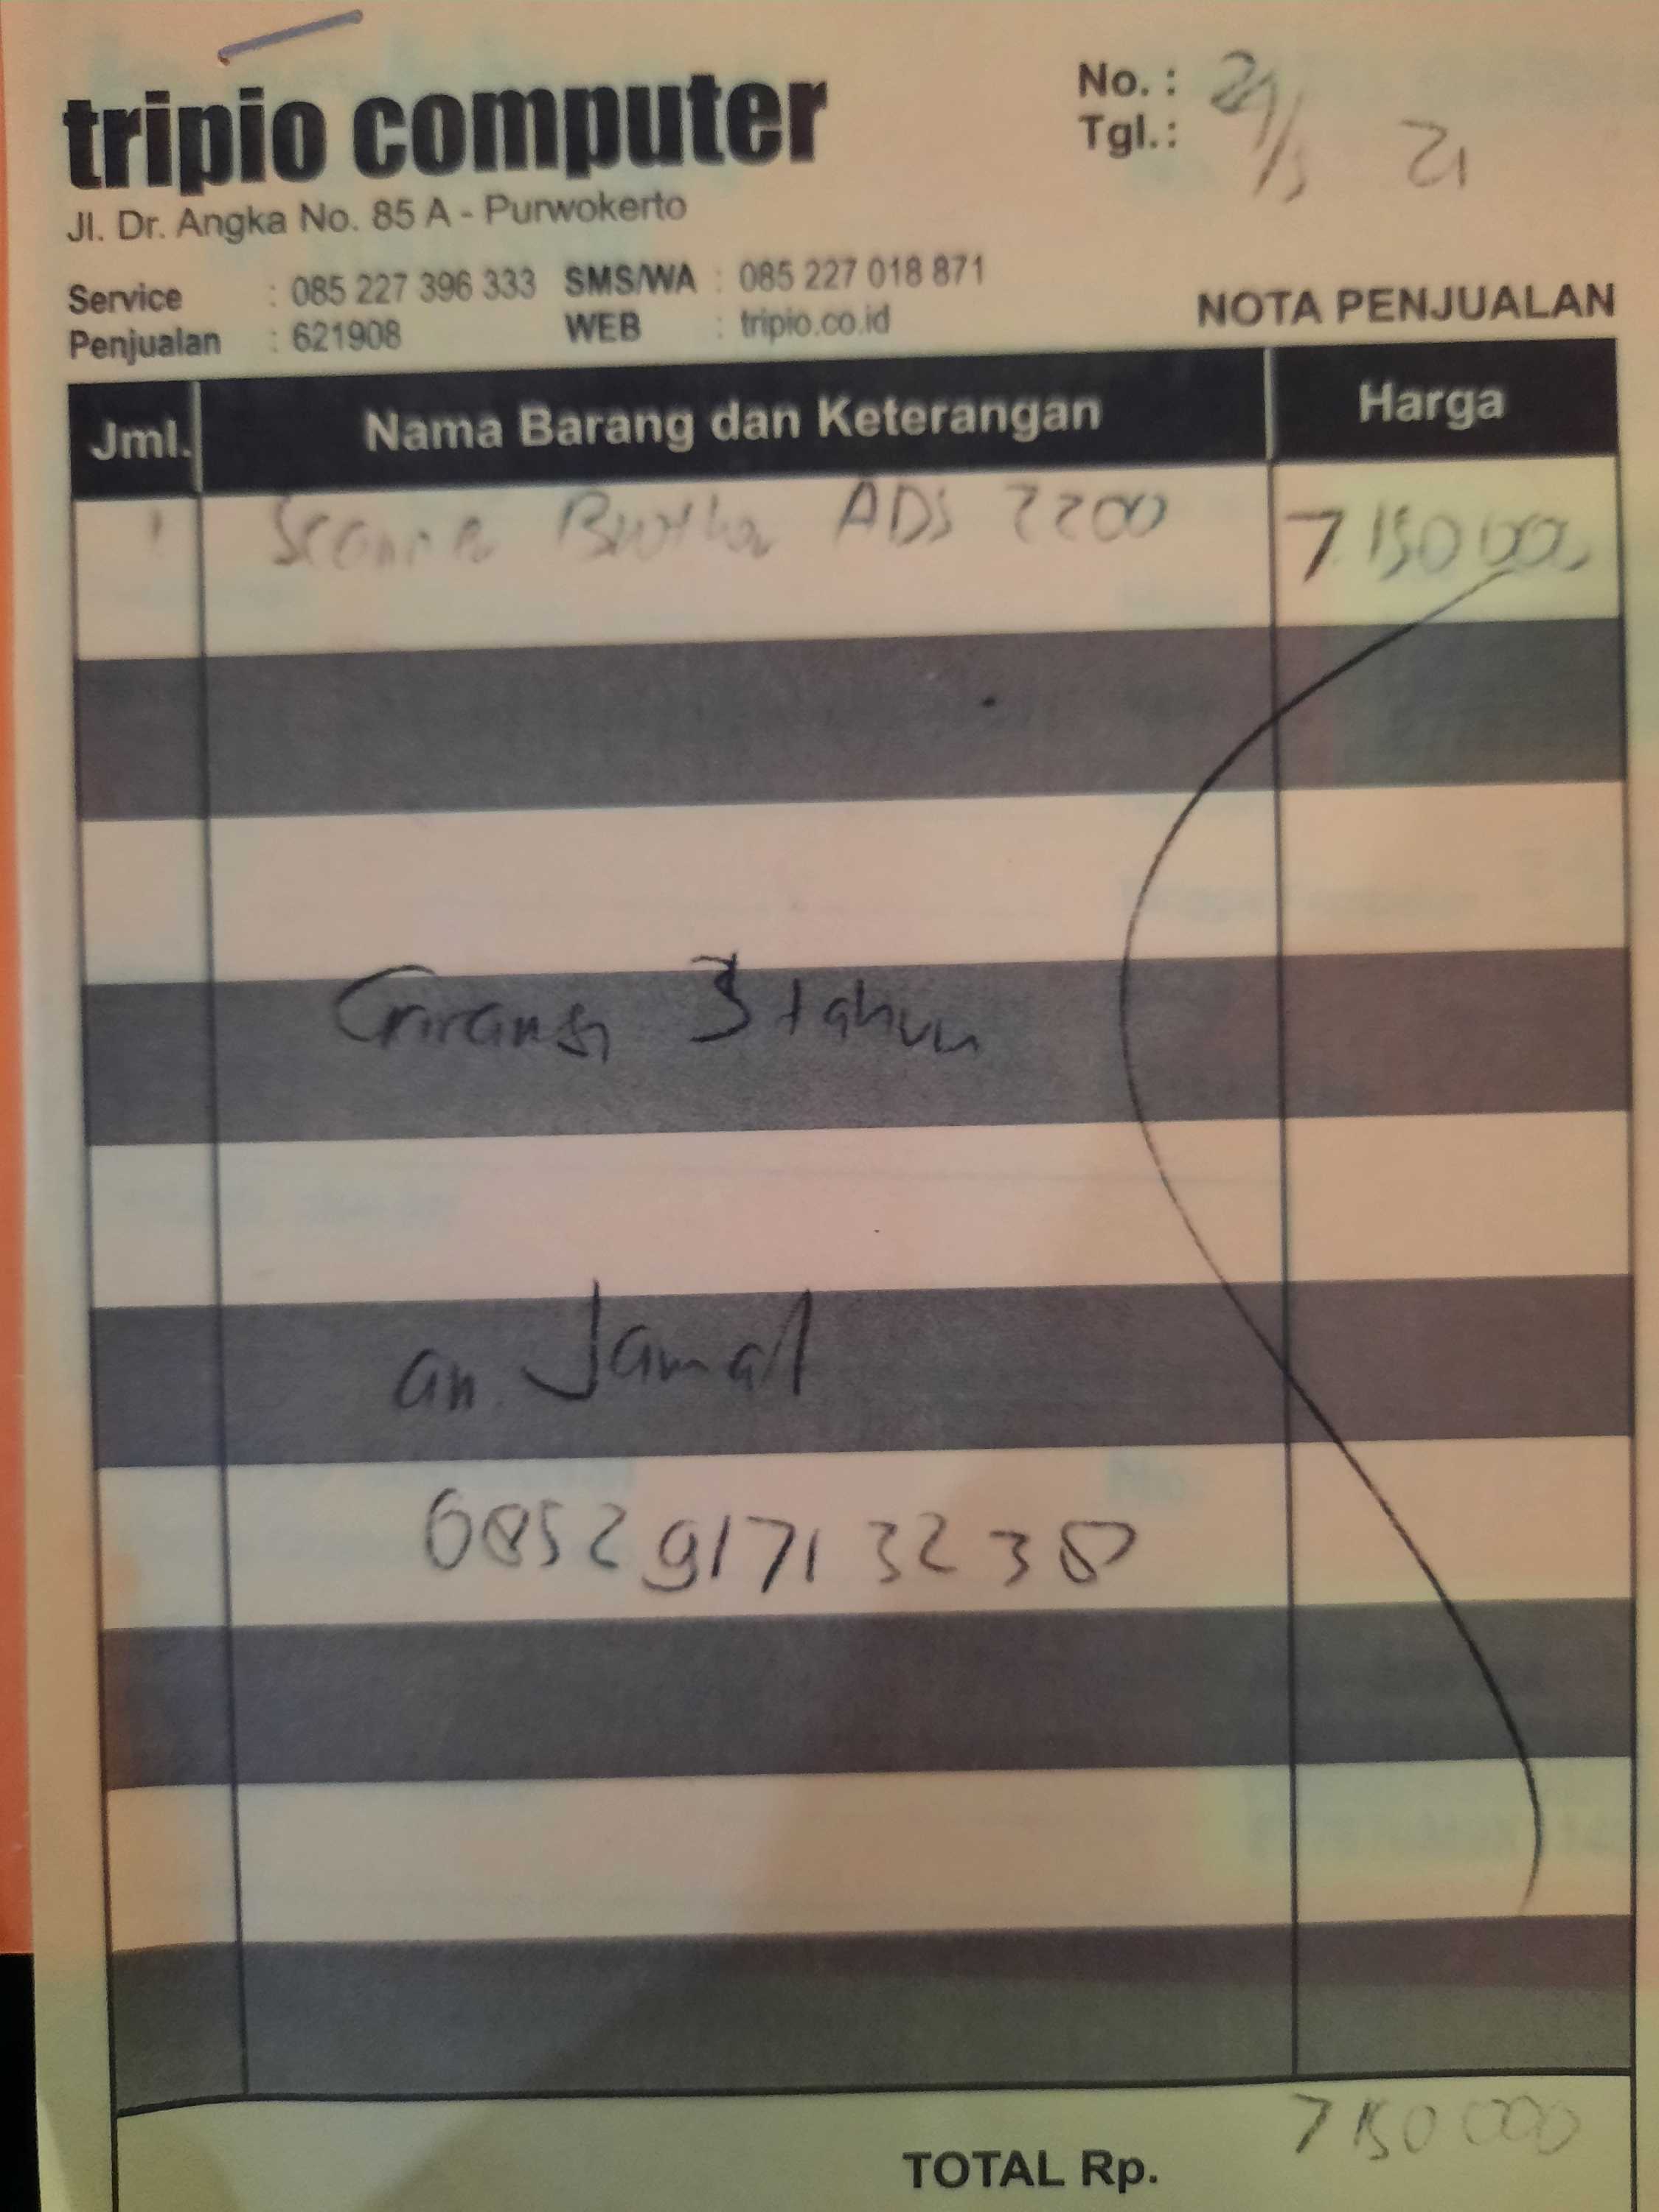 tripio computer
Jl. Dr. Angka No. 85 A - Purwokerto
Service : 085 227 396 333 SMS/WA : 085 227 018 871
Penjualan : 621908 WEB : tripio.co.id
No. :
Tgl. : 21
NOTA PENJUALAN
Jml. Nama Barang dan Keterangan Harga
1 Scanner Brother ADS 2200 7150000
Garansi 3 tahun
an. Jamal
085291713238
TOTAL Rp. 7150000